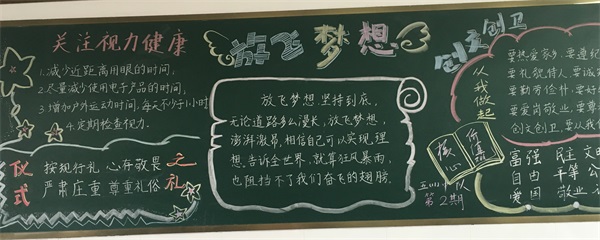 关注视力健康
1.减少近距离用眼的时间,
2.尽量减少使用电子产品的时间;
3.增加户外运动时间,每天不少于1小时
4.定期检查视力.
仪式
之礼
按规行礼 心存敬畏
严肃庄重 尊重礼俗
放飞梦想
放飞梦想.坚持到底.
无论道路多么漫长,放飞梦想,
澎湃激昂.相信自己可以实现理
想.告诉全世界.就算狂风暴雨.
也阻挡不了我们奋飞的翅膀.
创文创卫
从我做起
要热爱家乡.要遵纪
要礼貌待人.要诚
要勤劳俭朴.要好
要爱岗敬业.要尊
创文创卫.要从我
核心
价值观
富强 民主 文
自由 平等 公
爱国 敬业
第2期